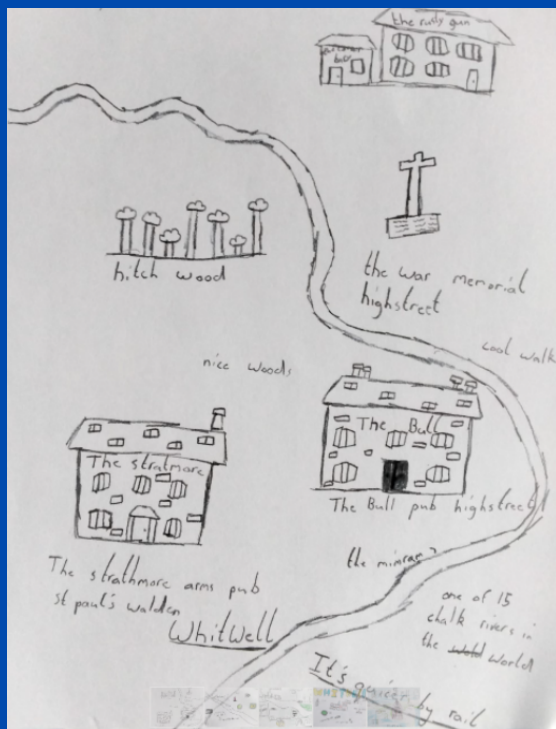 the rusty gun
hitch wood
the war memorial
highstreet
cool walk
nice woods
The Bull
The stratmore
The Bull pub highstreet
the mimram?
The strathmore arms pub
st paul's walden
one of 15
chalk rivers in
the world
Whitwell
It's quicer by rail